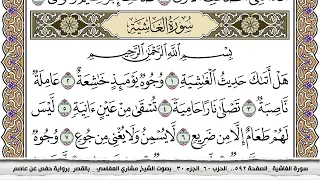 سُورَةُ الغَاشِيَةِ
بِسْمِ اللَّهِ الرَّحْمَٰنِ الرَّحِيمِ
هَلْ أَتَىٰكَ حَدِيثُ الْغَٰشِيَةِ ١ وُجُوهٌ يَوْمَئِذٍ خَٰشِعَةٌ ٢ عَامِلَةٌ
نَّاصِبَةٌ ٣ تَصْلَىٰ نَارًا حَامِيَةً ٤ تُسْقَىٰ مِنْ عَيْنٍ ءَانِيَةٍ ٥ لَّيْسَ
لَهُمْ طَعَامٌ إِلَّا مِن ضَرِيعٍ ٦ لَّا يُسْمِنُ وَلَا يُغْنِي مِن جُوعٍ ٧ وُجُوهٌ
سورة الغاشية الصفحة ٥٩٢ الحزب ٦٠ الجزء ٣٠ بصوت الشيخ مشاري العفاسي بالقصر برواية حفص عن عاصم